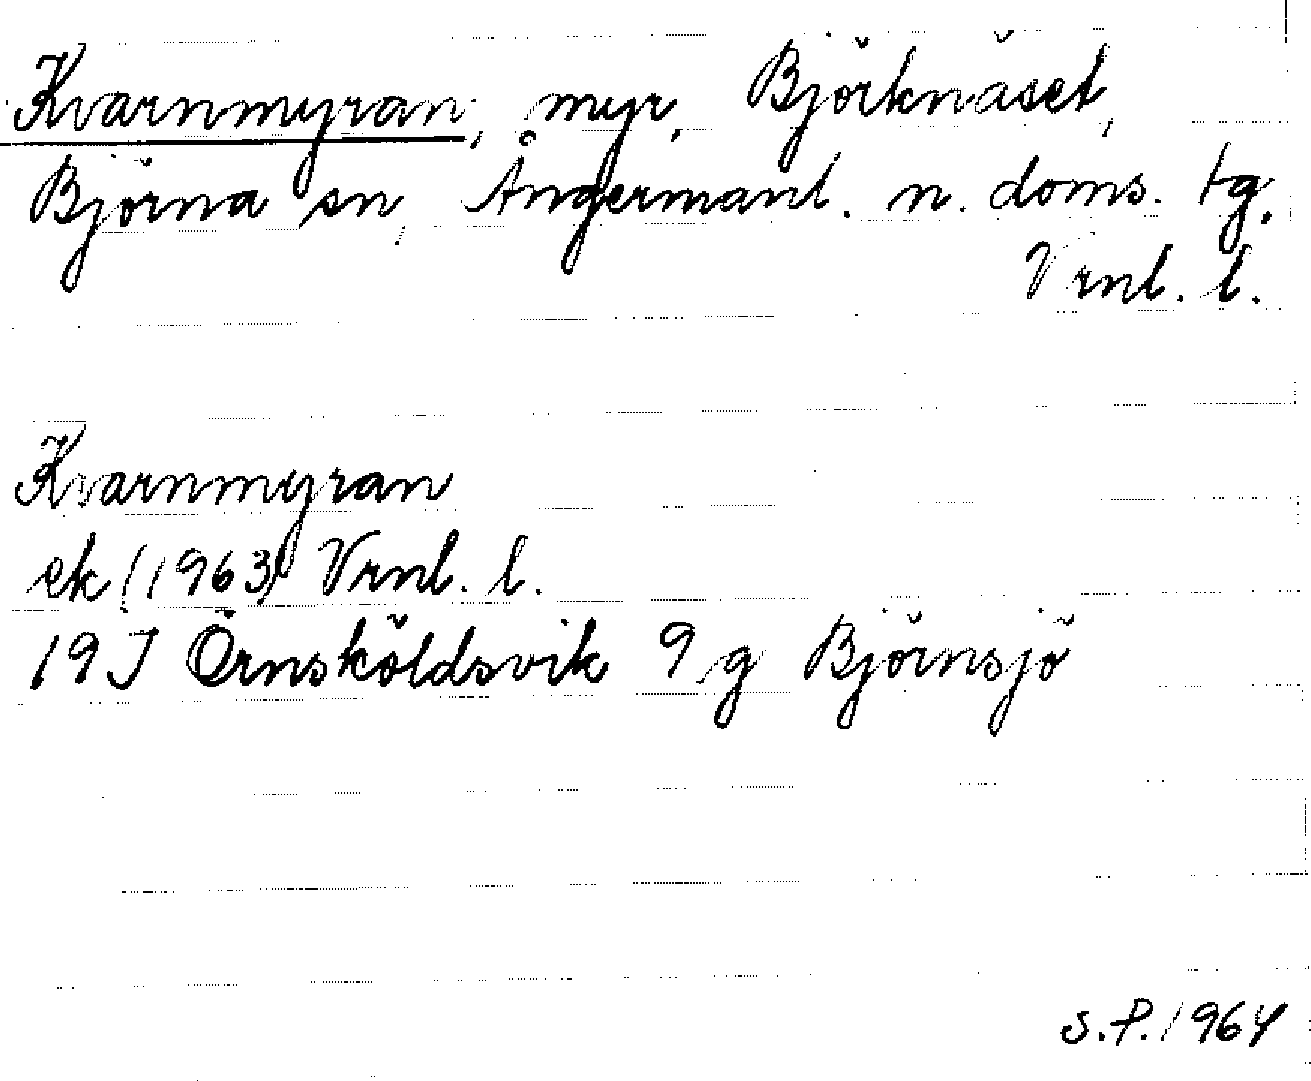 Kvarnmyran, myr, Björknäset,
Björna sn, Ångermanl. n. doms. tg.
Vrnl. l.
Kvarnmyran
ek (1963) Vrnl. l.
19J Örnsköldsvik 9 g Björnsjö
S.P. 1964